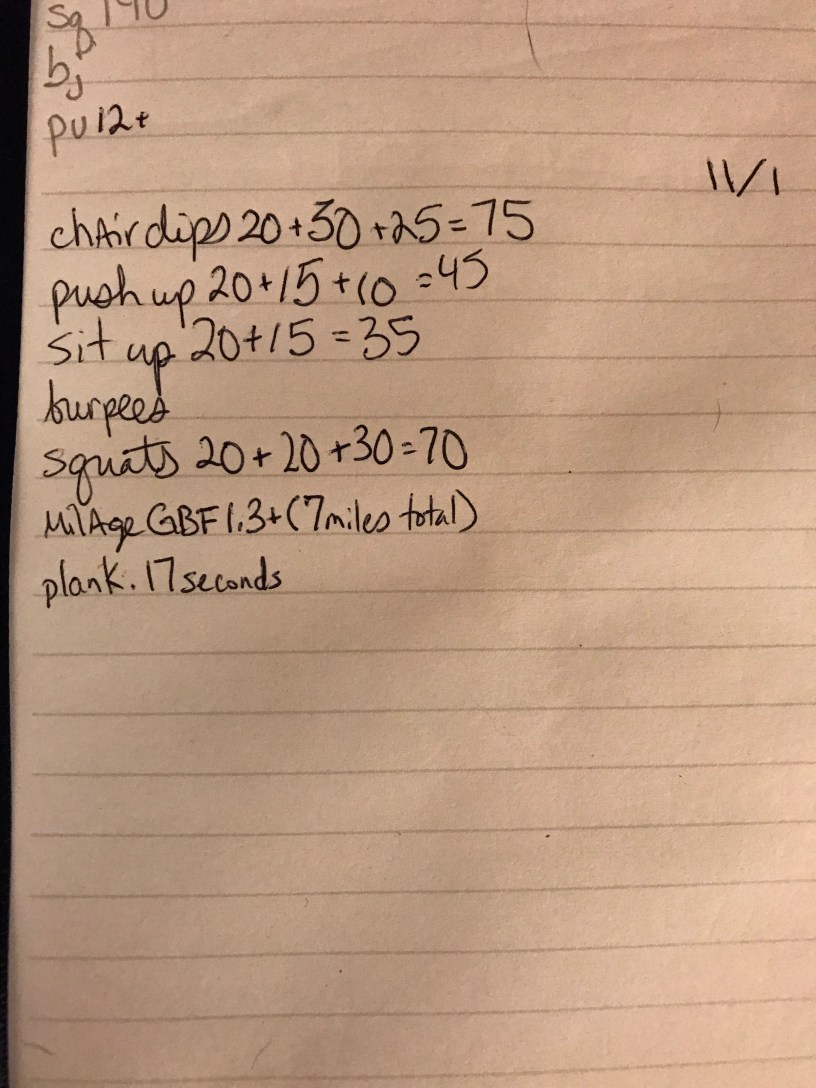 sq 140
bj
pu 12+
11/1
chAir dips 20+30+25=75
push up 20+15+10 =45
sit up 20+15 =35
burpees
squats 20+20+30=70
MilAge GBF 1.3+(7miles total)
plank. 17 seconds